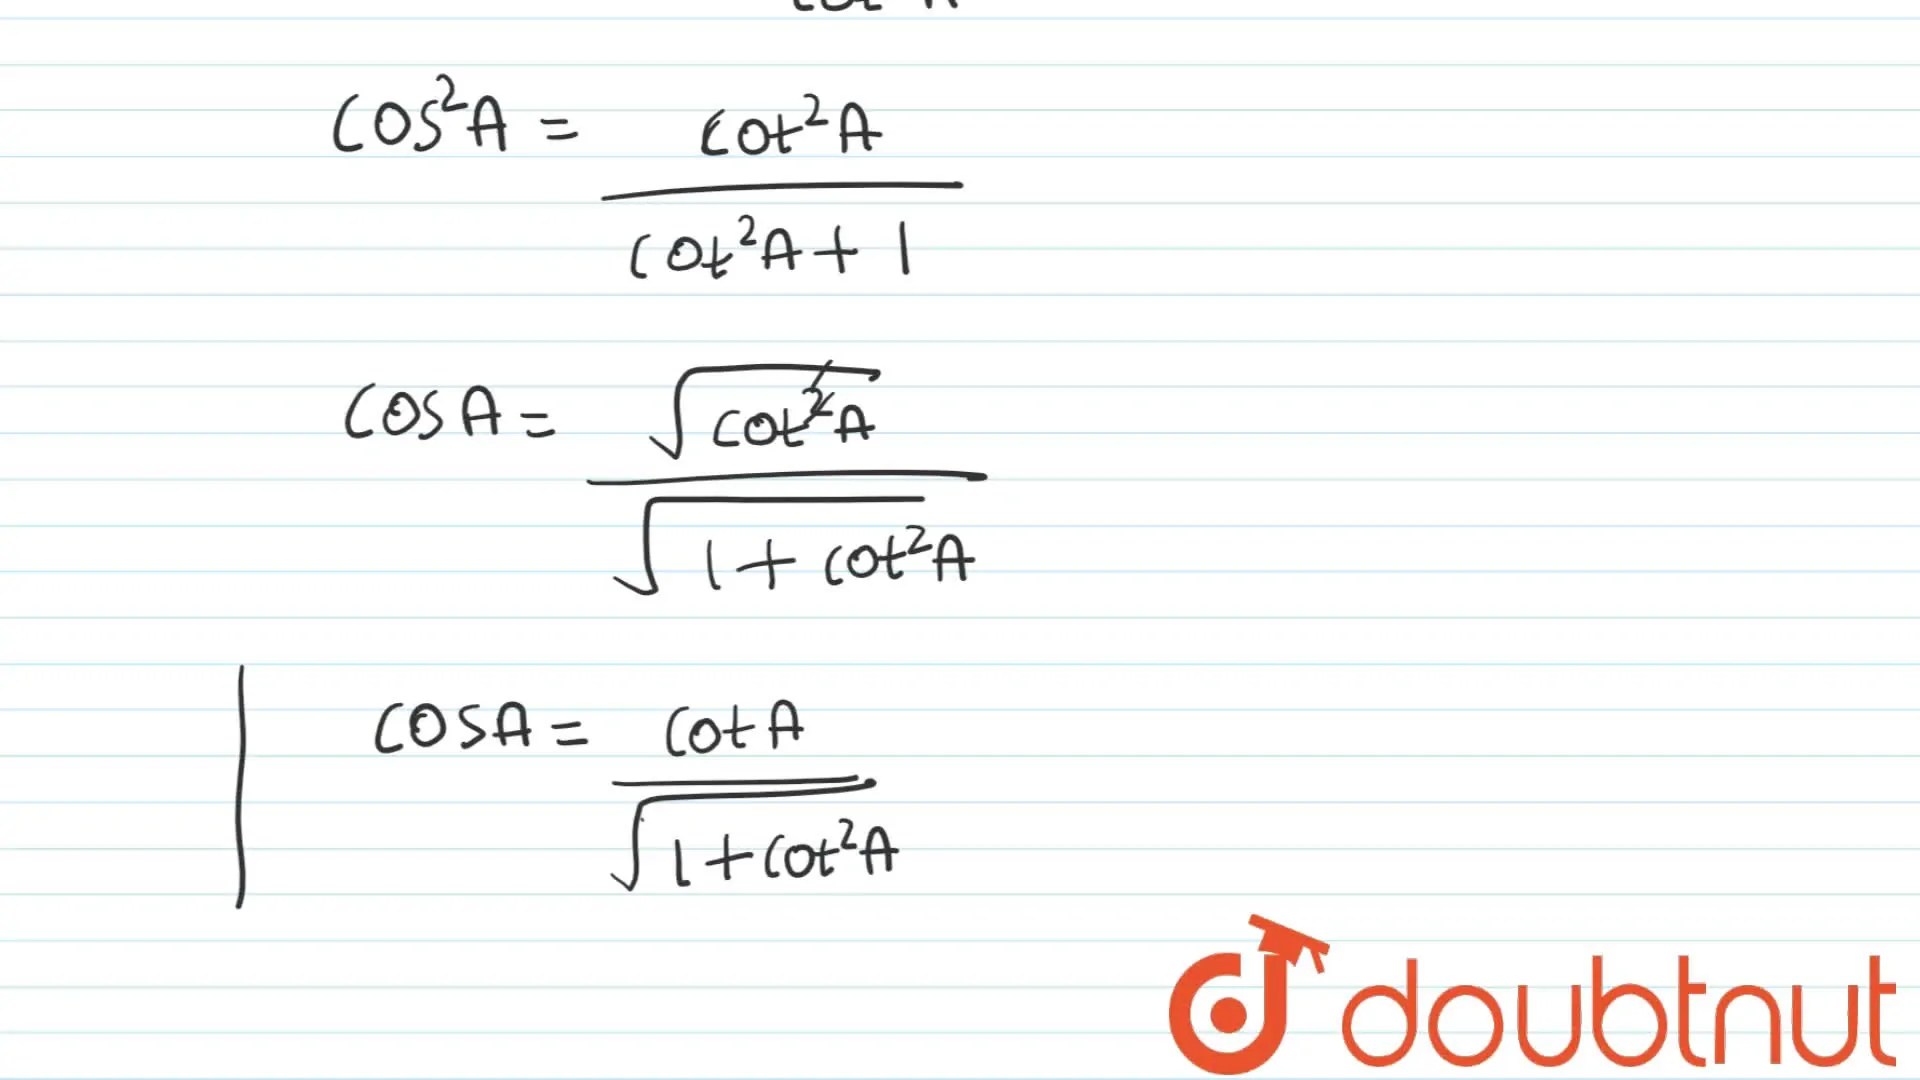 cos²A = cot²A
cot²A + 1
cos A = √cot²A
√1 + cot²A
cosA = cot A
√1 + cot²A
doubtnut